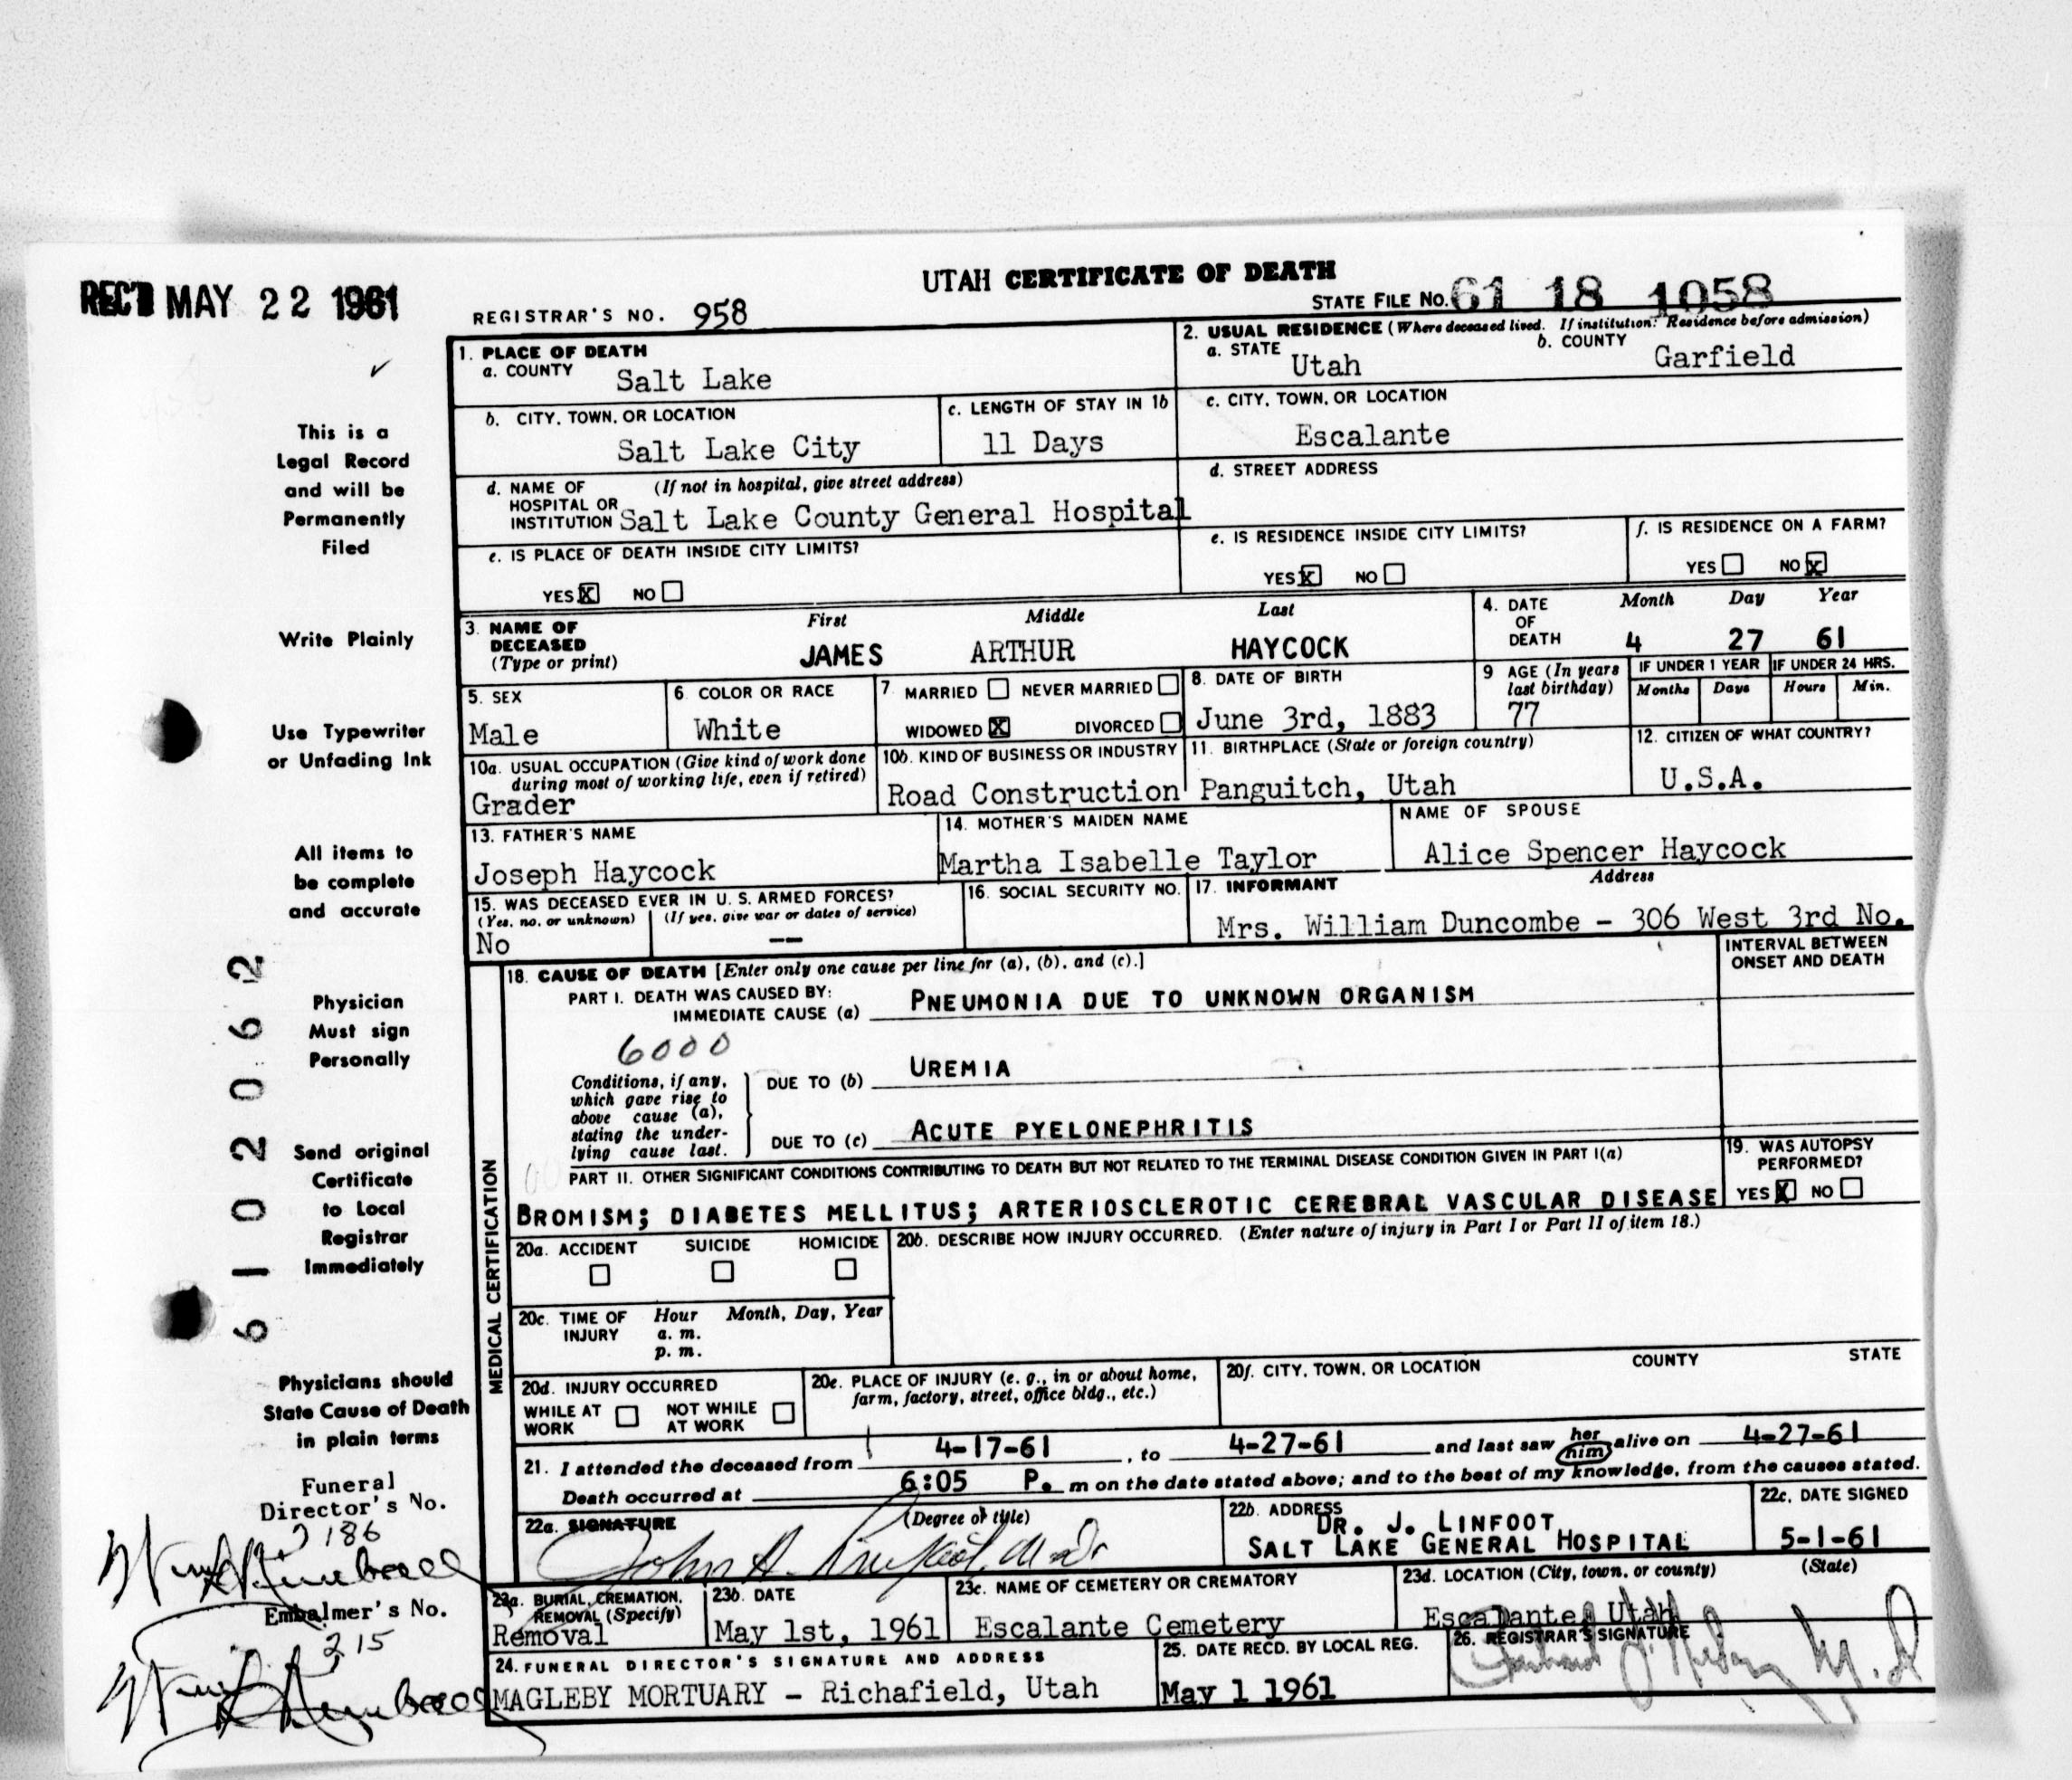 UTAH CERTIFICATE OF DEATH
REC'D MAY 22 1961
REGISTRAR'S NO. 958
STATE FILE NO. 61 18 1058
1. PLACE OF DEATH
a. COUNTY Salt Lake
2. USUAL RESIDENCE (Where deceased lived. If institution: Residence before admission)
a. STATE Utah
b. COUNTY Garfield
b. CITY, TOWN, OR LOCATION
Salt Lake City
c. LENGTH OF STAY IN 1b
11 Days
c. CITY, TOWN, OR LOCATION
Escalante
d. NAME OF HOSPITAL OR INSTITUTION (If not in hospital, give street address)
Salt Lake County General Hospital
d. STREET ADDRESS
e. IS PLACE OF DEATH INSIDE CITY LIMITS?
YES X NO
e. IS RESIDENCE INSIDE CITY LIMITS?
YES X NO
f. IS RESIDENCE ON A FARM?
YES NO X
3. NAME OF DECEASED (Type or print)
First Middle Last
JAMES ARTHUR HAYCOCK
4. DATE OF DEATH
Month Day Year
4 27 61
5. SEX
Male
6. COLOR OR RACE
White
7. MARRIED NEVER MARRIED
WIDOWED X DIVORCED
8. DATE OF BIRTH
June 3rd, 1883
9 AGE (In years last birthday)
77
IF UNDER 1 YEAR
Months Days
IF UNDER 24 HRS.
Hours Min.
10a. USUAL OCCUPATION (Give kind of work done during most of working life, even if retired)
Grader
10b. KIND OF BUSINESS OR INDUSTRY
Road Construction
11. BIRTHPLACE (State or foreign country)
Panguitch, Utah
12. CITIZEN OF WHAT COUNTRY?
U.S.A.
13. FATHER'S NAME
Joseph Haycock
14. MOTHER'S MAIDEN NAME
Martha Isabelle Taylor
NAME OF SPOUSE
Alice Spencer Haycock
15. WAS DECEASED EVER IN U. S. ARMED FORCES?
(Yes, no, or unknown) (If yes, give war or dates of service)
No --
16. SOCIAL SECURITY NO.
17. INFORMANT Address
Mrs. William Duncombe - 306 West 3rd No.
18. CAUSE OF DEATH [Enter only one cause per line for (a), (b), and (c).]
INTERVAL BETWEEN ONSET AND DEATH
PART I. DEATH WAS CAUSED BY:
IMMEDIATE CAUSE (a) PNEUMONIA DUE TO UNKNOWN ORGANISM
6000
Conditions, if any, which gave rise to above cause (a), stating the underlying cause last.
DUE TO (b) UREMIA
DUE TO (c) ACUTE PYELONEPHRITIS
PART II. OTHER SIGNIFICANT CONDITIONS CONTRIBUTING TO DEATH BUT NOT RELATED TO THE TERMINAL DISEASE CONDITION GIVEN IN PART I(a)
BROMISM; DIABETES MELLITUS; ARTERIOSCLEROTIC CEREBRAL VASCULAR DISEASE
19. WAS AUTOPSY PERFORMED?
YES X NO
MEDICAL CERTIFICATION
20a. ACCIDENT SUICIDE HOMICIDE
20b. DESCRIBE HOW INJURY OCCURRED. (Enter nature of injury in Part I or Part II of item 18.)
20c. TIME OF INJURY
Hour Month, Day, Year
a. m.
p. m.
20d. INJURY OCCURRED
WHILE AT WORK NOT WHILE AT WORK
20e. PLACE OF INJURY (e. g., in or about home, farm, factory, street, office bldg., etc.)
20f. CITY, TOWN, OR LOCATION COUNTY STATE
21. I attended the deceased from 4-17-61, to 4-27-61 and last saw her him alive on 4-27-61
Death occurred at 6:05 P. m on the date stated above; and to the best of my knowledge, from the causes stated.
22a. SIGNATURE (Degree or title)
John H. Linfoot, M.D.
22b. ADDRESS
DR. J. LINFOOT
SALT LAKE GENERAL HOSPITAL
22c. DATE SIGNED
5-1-61
23a. BURIAL, CREMATION, REMOVAL (Specify)
Removal
23b. DATE
May 1st, 1961
23c. NAME OF CEMETERY OR CREMATORY
Escalante Cemetery
23d. LOCATION (City, town, or county) (State)
Escalante, Utah
24. FUNERAL DIRECTOR'S SIGNATURE AND ADDRESS
MAGLEBY MORTUARY - Richafield, Utah
25. DATE RECD. BY LOCAL REG.
May 1 1961
26. REGISTRAR'S SIGNATURE
This is a
Legal Record
and will be
Permanently
Filed
Write Plainly
Use Typewriter
or Unfading Ink
All items to
be complete
and accurate
Physician
Must sign
Personally
Send original
Certificate
to Local
Registrar
Immediately
Physicians should
State Cause of Death
in plain terms
Funeral
Director's No.
186
Embalmer's No.
215
61 02062